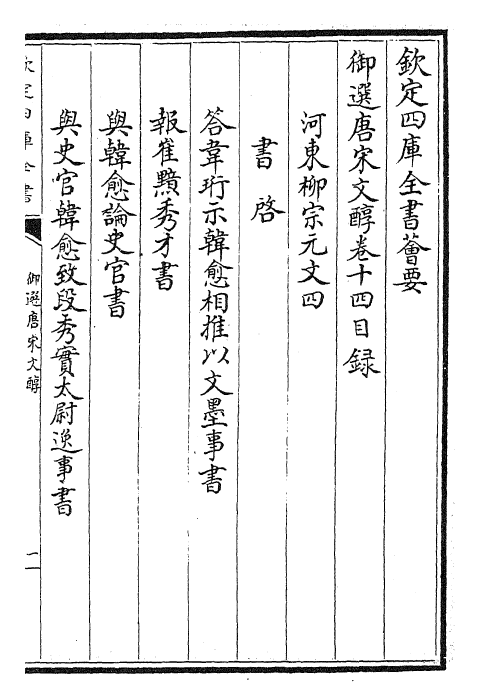 欽定四庫全書薈要
御選唐宋文醇卷十四目録
河東柳宗元文四
書啓
答韋珩示韓愈相推以文墨事書
報崔黯秀才書
與韓愈論史官書
與史官韓愈致段秀實太尉逸事書
欽定四庫全書
御選唐宋文醇
一